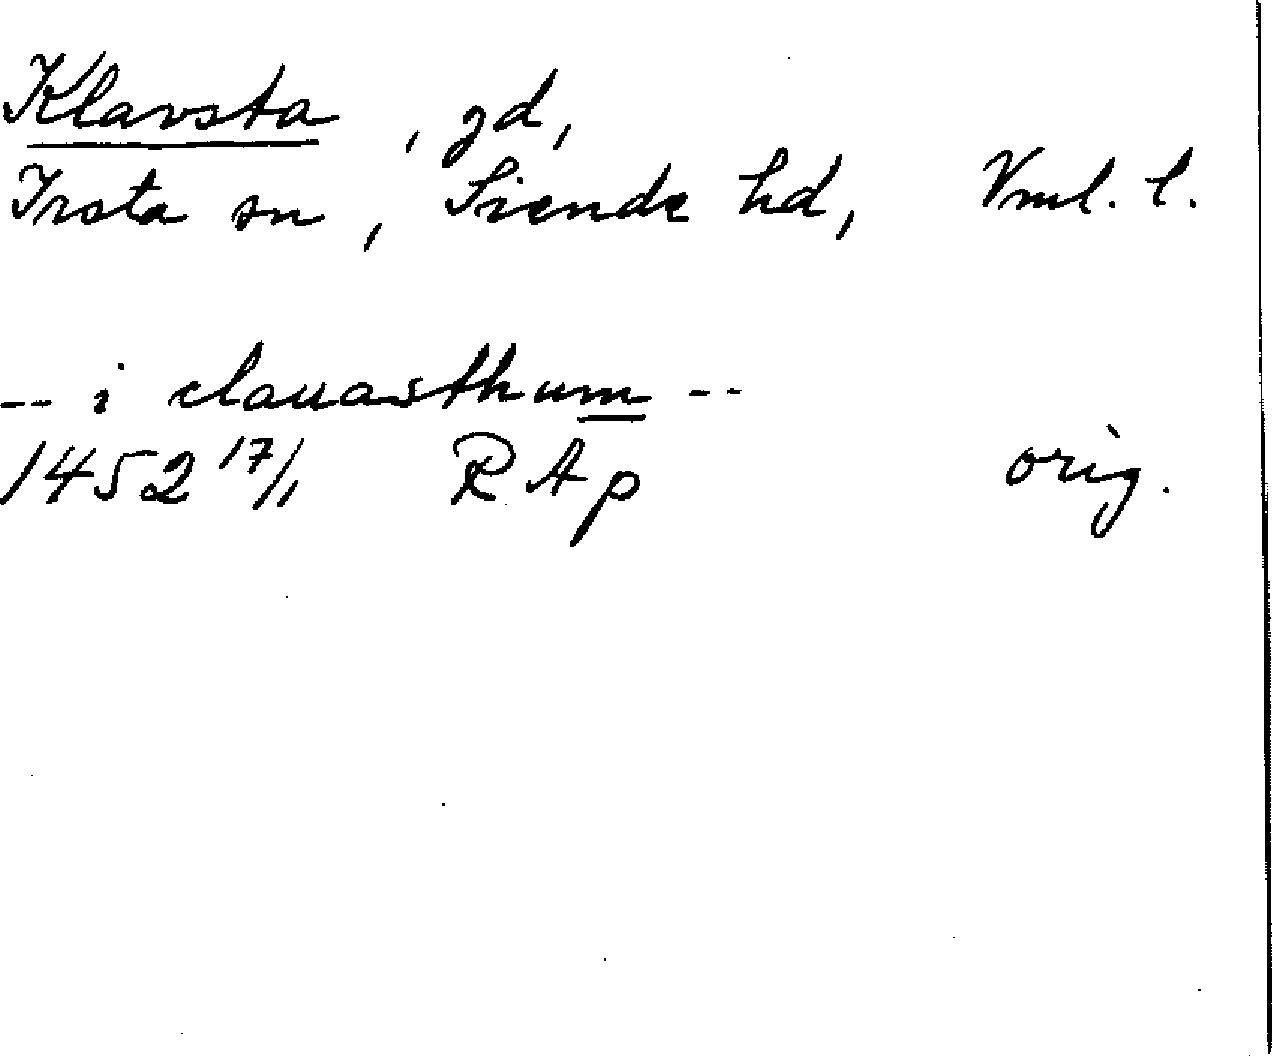 Klavsta, gd,
Irsta sn, Siende hd, Vml. l.
-- i clauasthum --
1452 17/1 RAp orig.